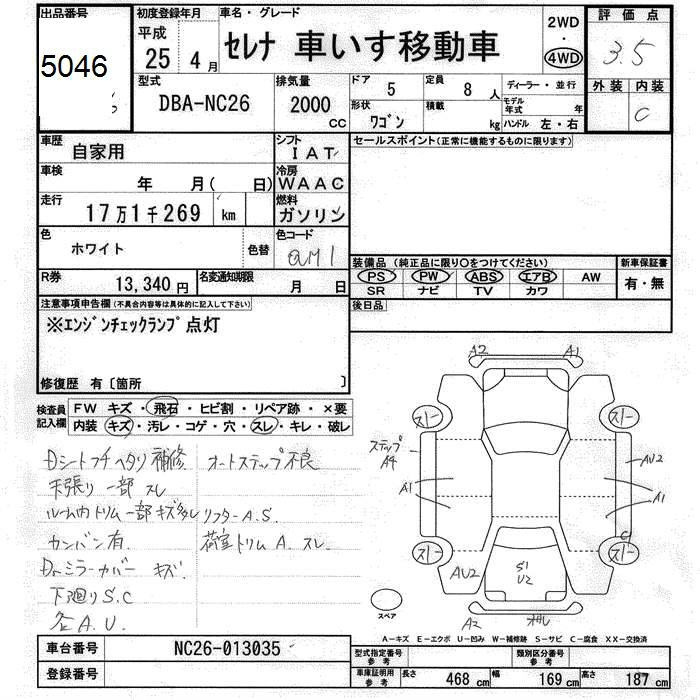 出品番号
5046
初度登録年月
平成
25 年 4 月
車名・グレード
セレナ 車いす移動車
2WD
・
4WD
評価点
3.5
外装 内装
C
型式
DBA-NC26
排気量
2000
CC
ドア 5
定員 8 人
形状 ワゴン
積載 kg
ディーラー・並行
モデル年式 年
ハンドル 左・右
車歴
自家用
シフト
IAT
車検
年 月( 日)
冷房
WAAC
走行
17万1千269 km
燃料
ガソリン
色
ホワイト
色替
色コード
QM1
R券
13,340 円
名変通知期限
月 日
セールスポイント(正常に機能するものに限ります)
装備品(純正品に限り○をつけてください)
PS PW ABS エアB AW
SR ナビ TV カワ
新車保証書
有・無
後日品
注意事項申告欄(不具合内容等は具体的に記入して下さい)
※エンジンチェックランプ点灯
修復歴 有〔箇所 〕
検査員記入欄
FW キズ・飛石・ヒビ割・リペア跡・×要
内装・キズ・汚レ・コゲ・穴・スレ・キレ・破レ
Dシートフチヘタリ補修
オートステップ不良
天張り一部スレ
ルーム内トリム一部キズ多し
リフターA.S.
カンバン有
荷室トリムA.スレ
Drミラーカバーキズ
下廻りS.C
各A.U.
A2 A1
スノー スノー
ステップ
A4
AU2
A1 A1
C
スノー スノー
AU2
S1
U2
A2
スペア
A―キズ E―エクボ U―凹み W―補修跡 S―サビ C―腐食 XX―交換済
車台番号 NC26-013035
登録番号
型式指定番号
参考
類別区分番号
参考
車庫証明用
参考
長さ 468 cm
幅 169 cm
高さ 187 cm